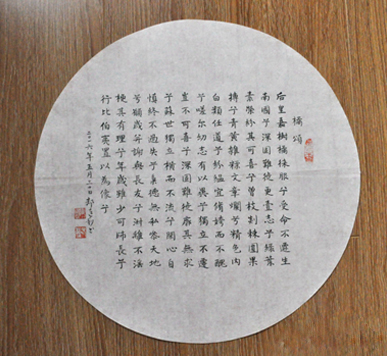 橘頌
后皇嘉樹橘徠服兮受命不遷生
南國兮深固難徙更壹志兮綠葉
素榮紛其可喜兮曾枝剡棘圓果
摶兮青黃雜糅文章爛兮精色內
白類任道兮紛緼宜修姱而不醜
兮嗟爾幼志有以異兮獨立不遷
豈不可喜兮深固難徙廓其無求
兮蘇世獨立橫而不流兮閉心自
慎終不過失兮秉德無私參天地
兮願歲并謝與長友兮淑離不淫
梗其有理兮年歲雖少可師長兮
行比伯夷置以為像兮
二〇一六年五月